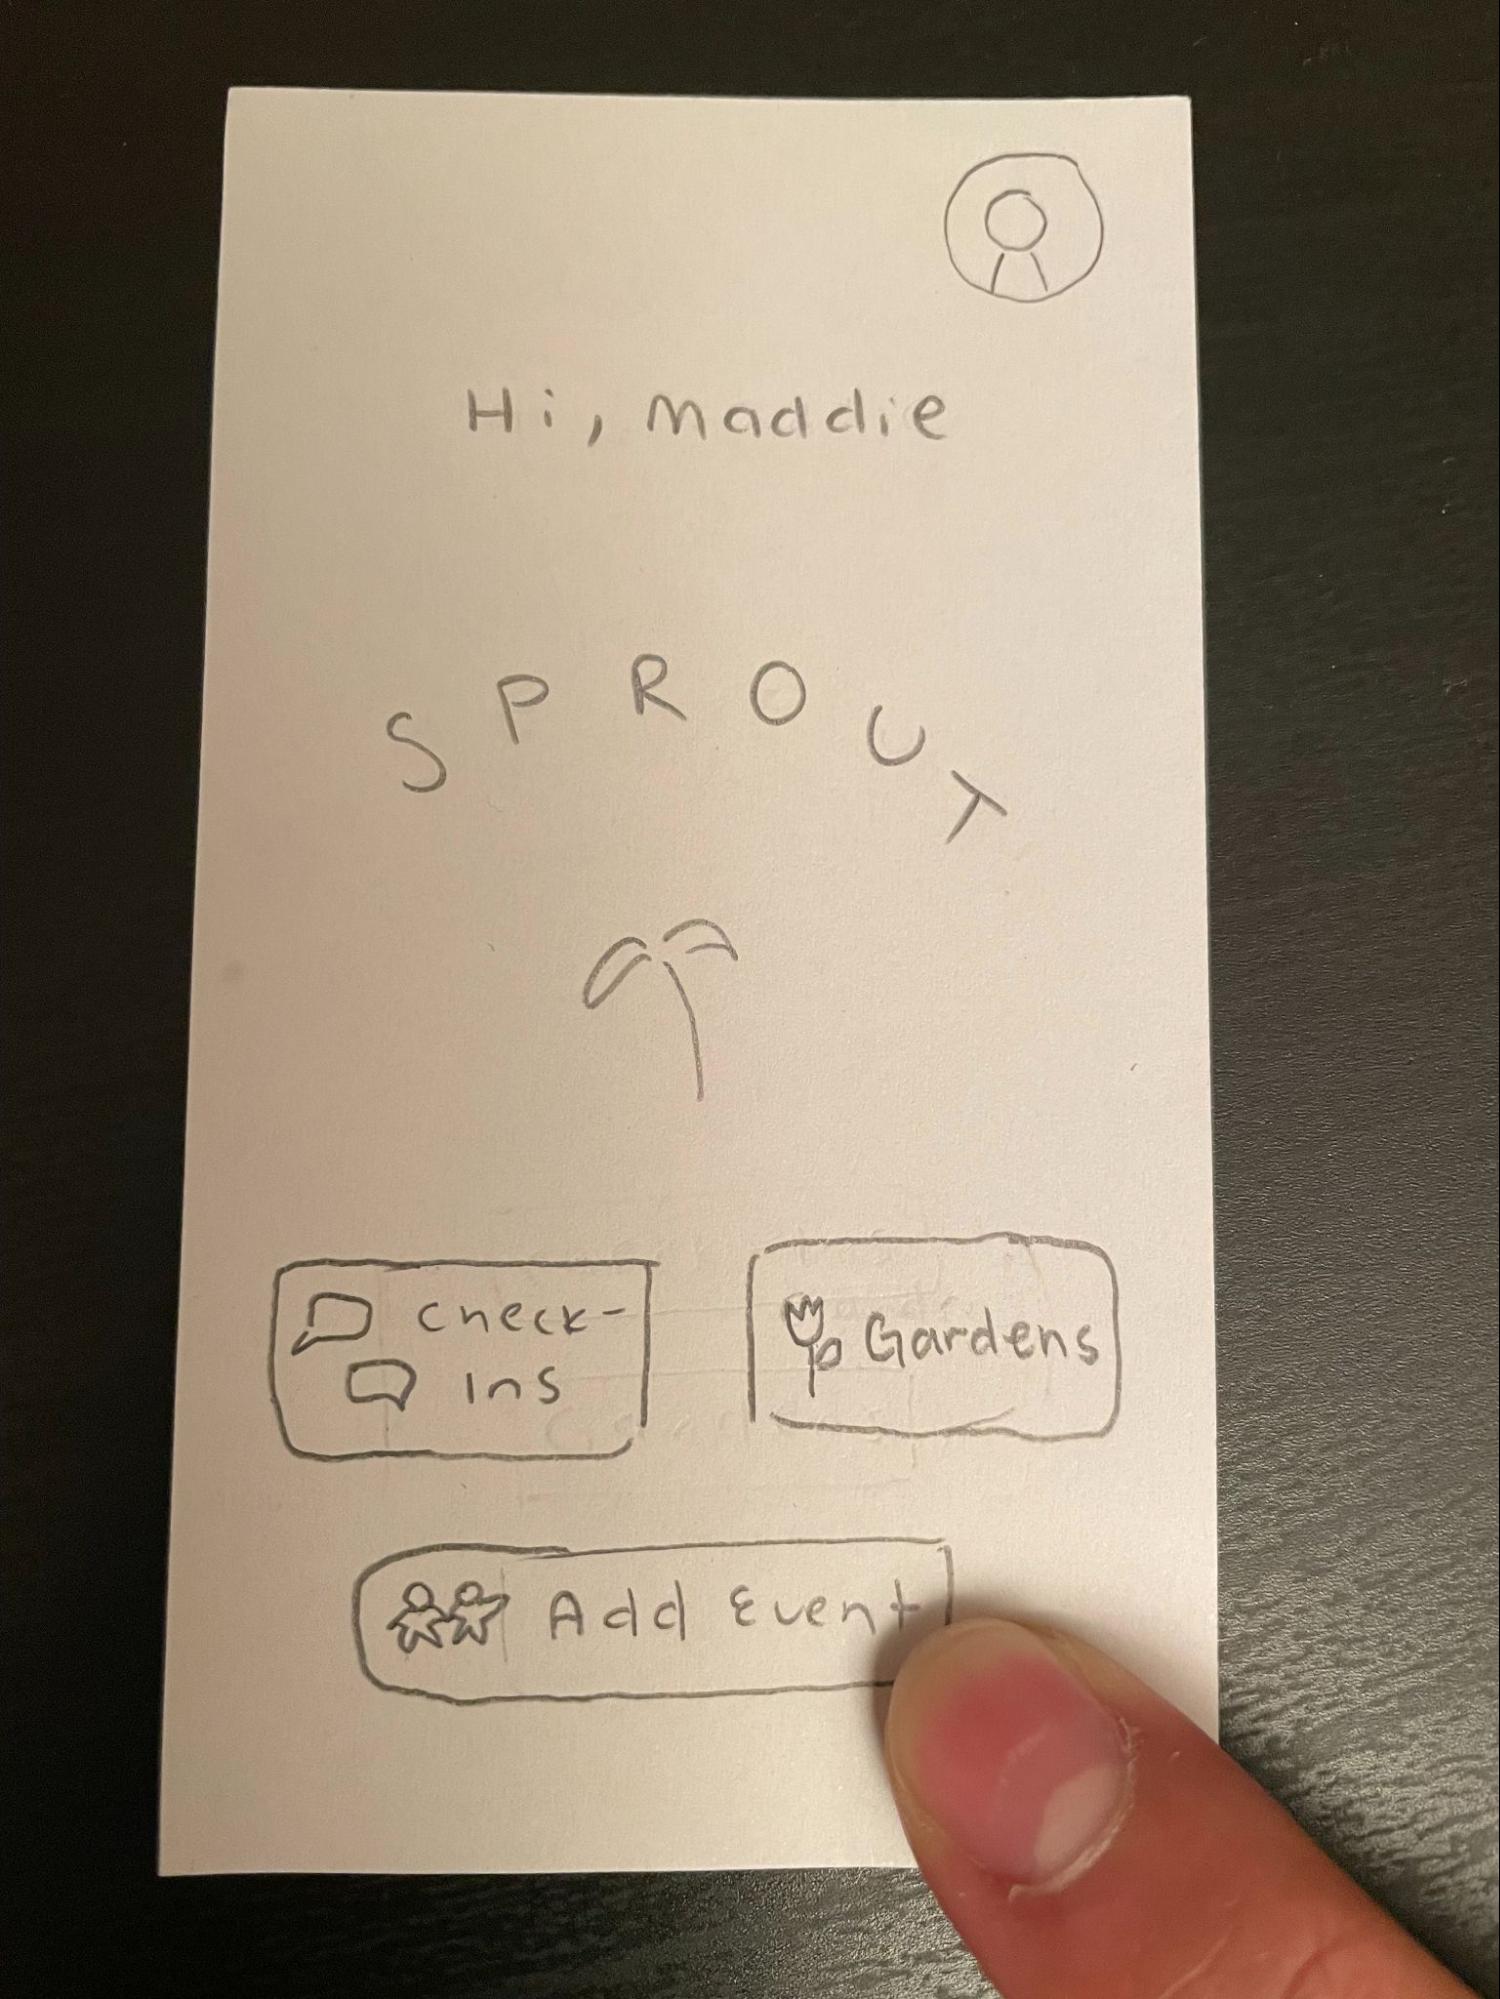 Hi, Maddie
SPROUT
Check-
ins
Gardens
Add Event